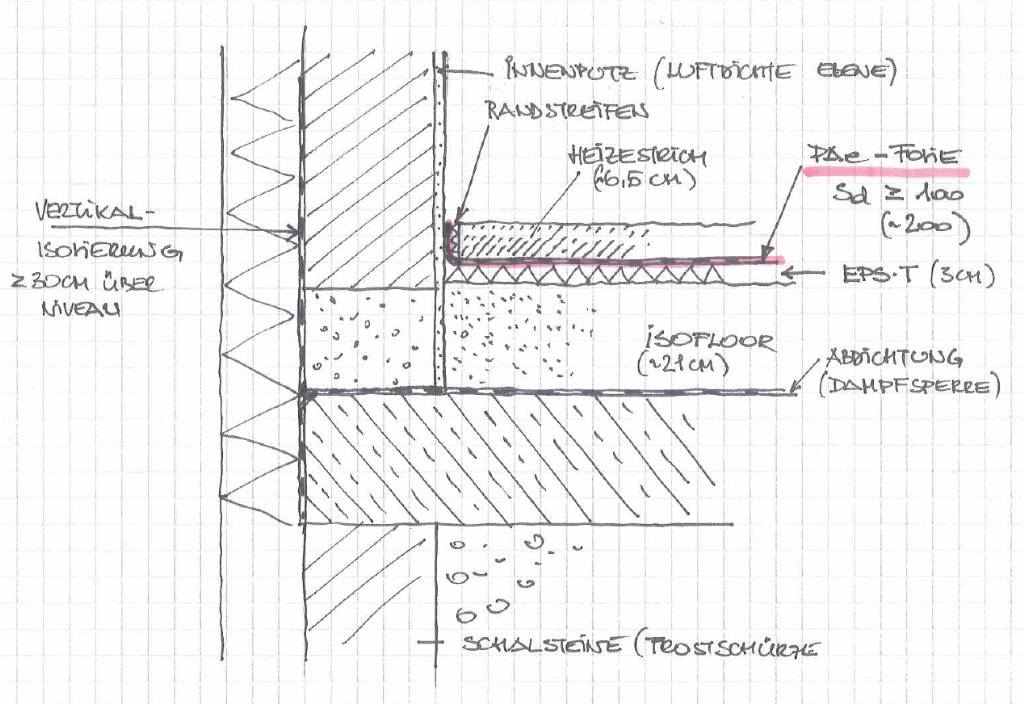 INNENPUTZ (LUFTDICHTE EBENE)
RANDSTREIFEN
HEIZESTRICH
(~6,5 CM)
PAe-FOLIE
Sd ≥ 100
(~200)
VERTIKAL-
ISOLIERUNG
≥30CM ÜBER
NIVEAU
EPS-T (3CM)
ISOFLOOR
(~21CM)
ABDICHTUNG
(DAMPFSPERRE)
SCHALSTEINE (FROSTSCHÜRZE